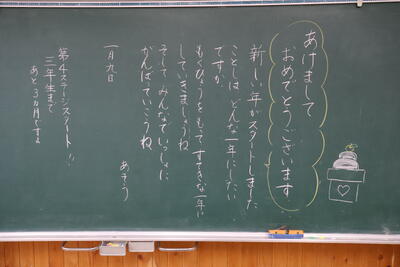 あけまして
おめでとうございます
新しい年がスタートしました
ことしは、どんな一年にしたい
ですか
もくひょうをもってすてきな一年に
していきましょうね
そしてみんなでいっしょに
がんばていこうね
あそう
一月九日
第4ステージスタート!!
三年生まで
あと3カ月ですよ